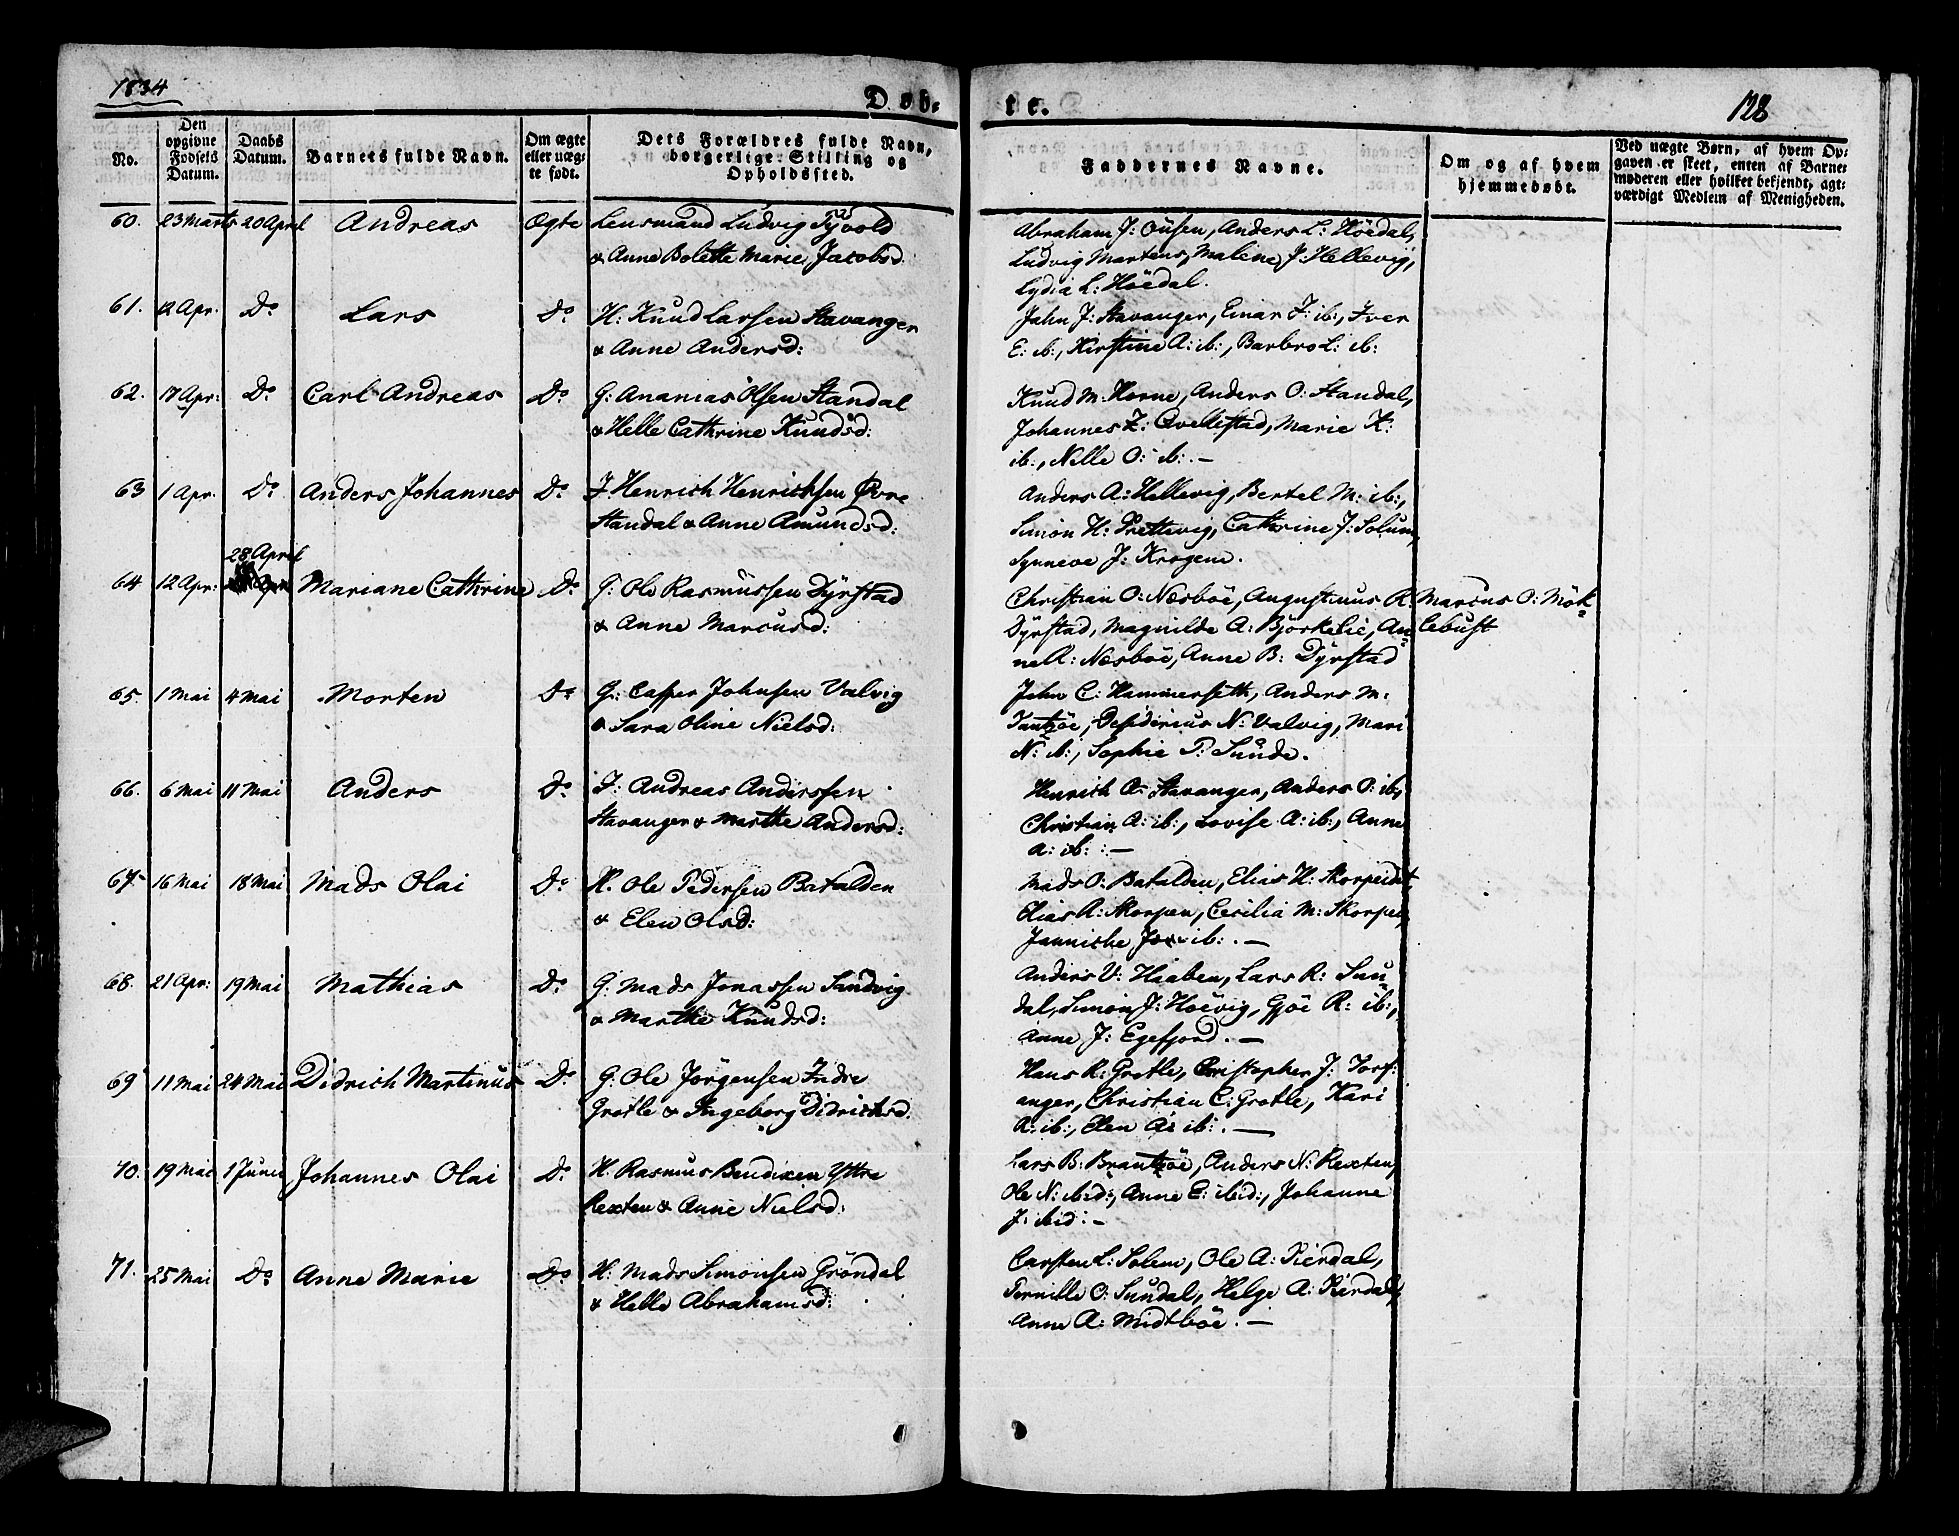 1834
Døb-
te.
128
No.
Den opgivne Fødsels Datum.
Daabs Datum.
Barnets fulde Navn.
Om ægte eller uægte født.
Dets Forældres fulde Navn, borgerlige Stilling og Opholdssted.
Faddernes Navne.
Om og af hvem hjemmedøbt.
Ved uægte Børn, af hvem Opgaven er skeet, enten af Barnemoderen eller hvilket bekjendt, agtværdigt Medlem af Menigheden.
60. 23 Marts 20 April Andreas Ægte Lensmand Ludvig
& Anne Bolette Marie Jacobsd:
Abraham J: Anders L: Höedal,
Ludvig Martens, Malene J: Hellevig,
Lydia L: Höedal.
61. 12 Apr: Do Lars Do H: Knud Larsen Stavanger
& Anne Andersd:
John J: Stavanger, Einar J: ib:, Iver
E: ib:, Kirstine A: ib:, Barbro L: ib:
62. 17 Apr: Do Carl Andreas Do G: Ananias Olsen Standal
& Helle Cathrine Knudsd:
Knud M: Horne, Anders O: Standal,
Johannes Z: Qvellestad, Marie K:
ib:, Nille O: ib: . —
63 1 Apr. Do Anders Johannes Do J Henrich Henrichsen Øvre
Standal & Anne Amundsd:
Anders A: Hellevig, Bertel M: ib:,
Simon H: Cathrine J: Solum,
Synneve J: Krogem.
64 12 Apr: 28 April Mariane Cathrine Do G: Ole Rasmüssen Dÿrstad
& Anne Marcusd:
Christian O: Næsböe, Augustinus R:
Dÿrstad, Magnilde A: Björkelie, An-
ne A: Næsböe, Anne B: Dÿrstad
Marcus O: Mök-
lebust
65. 1 Mai 4 Mai Morten Do G: Casper Johnsen Valvig
& Sara Oline Nielsd:
John C: Hammerseth, Anders M:
Desiderius N: Valvig, Mari
N: ib:, Sophie P: Sunde.
66. 6 Mai 11 Mai Anders Do J: Andreas Anderssen
Stavanger & Marthe Andersd:
Henrich A: Stavanger, Anders O: ib:,
Christian A: ib:, Lovise A: ib:, Anne
A: ib: : —
67. 16 Mai 18 Mai Mads Olai Do H. Ole Pedersen Batalden
& Elen Olsd:
Mads O: Batalden, Elias H: Skorpeidet,
Elias A: Skorpen, Cecilia M: Skorpen,
Jannicke ib: . —
68. 21 Apr: 19 Mai Mathias Do G: Mads Jonassen Sandvig
& Marthe Knudsd:
Anders V: Haaben, Lars R: Sun-
dal, Simon J: Höevig, Gjöe R: ib:,
Anne J: Egefjord . —
69 11 Mai 24 Mai Didrich Martinus Do G: Ole Jörgensen Indre
Grotle & Ingeborg Didrichsd:
Hans R: Grotle, Christopher J: Torf-
anger, Christian C: Grotle, Kari
A: ib:, Elen A: ib: . —
70. 19 Mai 1 Junii Johannes Olai Do H: Rasmus Bendixen Yttre
Rexten & Anne Nielsd:
Lars B: Brantzöe, Anders N: Rexten,
Ole N: ibid:, Anne E: ibid:, Johanne
J: ibid: —
71. 25 Mai Do Anne Marie Do H: Mads Simonsen Gröndal
& Helle Abrahamsd:
Carsten L: Solem, Ole A: Rierdal,
Pernille O: Sundal, Helge A: Rierdal,
Anne A: Midtböe . —